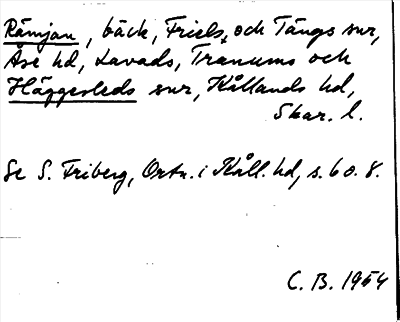 Rämjan, bäck, Friels, och Tängs snr,
Åse hd, Lavads, Tranums och
Häggesleds snr, Kållands hd,
Skar. l.
Se S. Friberg, Ortn. i Kåll. hd, s. 60. 8.
C. B. 1954